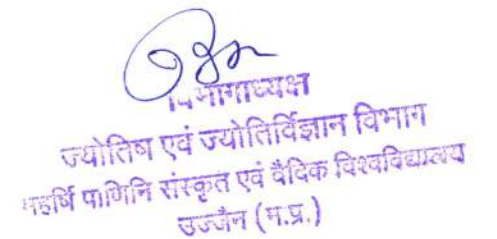 विभागाध्यक्ष
ज्योतिष एवं ज्योतिर्विज्ञान विभाग
महर्षि पाणिनि संस्कृत एवं वैदिक विश्वविद्यालय
उज्जैन (म.प्र.)